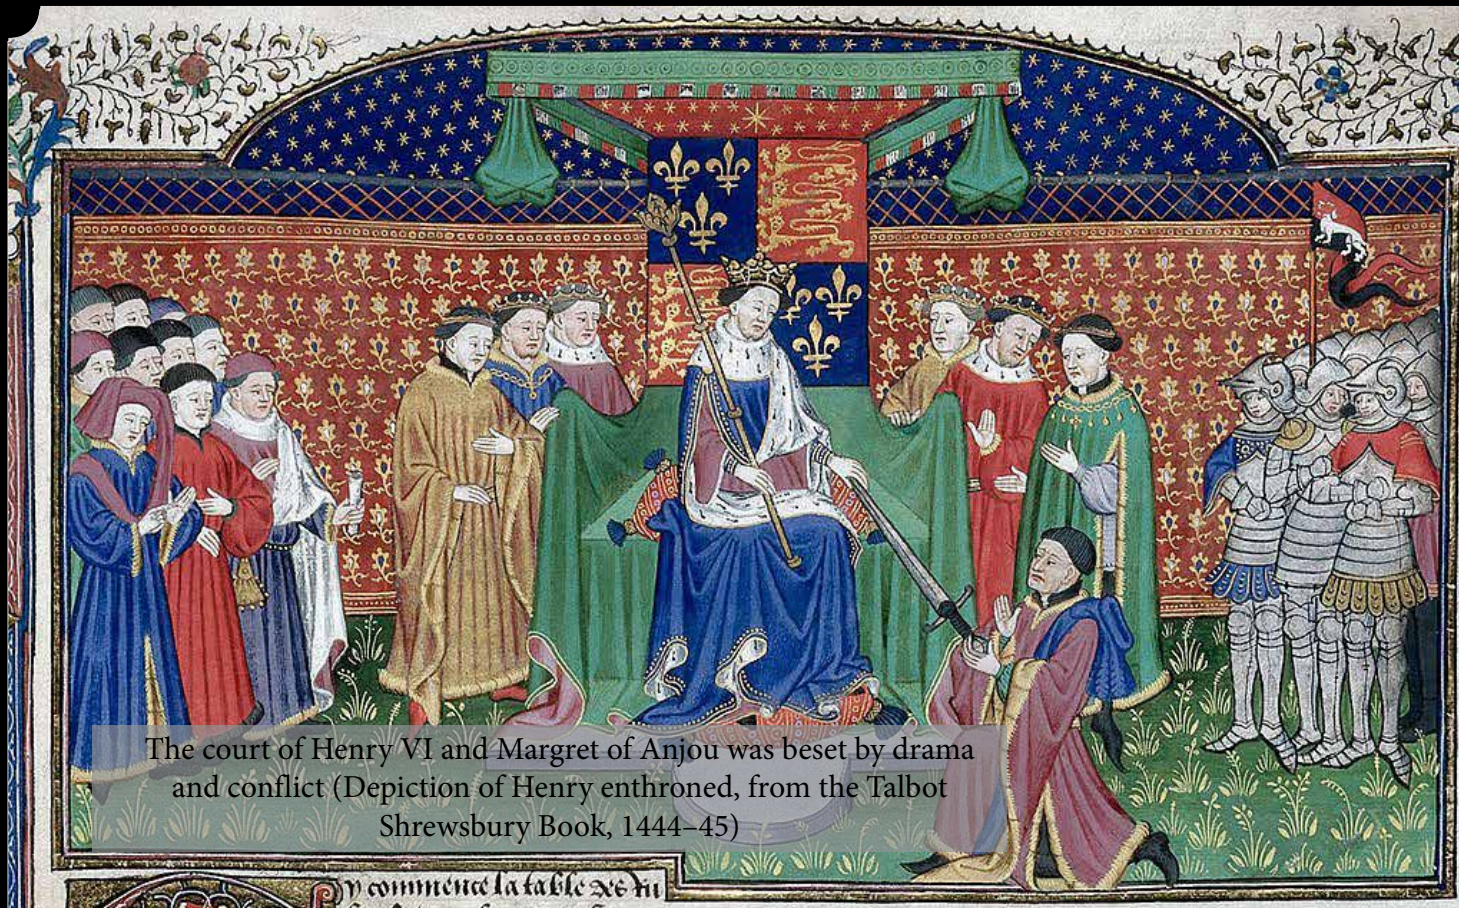 The court of Henry VI and Margret of Anjou was beset by drama
and conflict (Depiction of Henry enthroned, from the Talbot
Shrewsbury Book, 1444–45)
commence la table